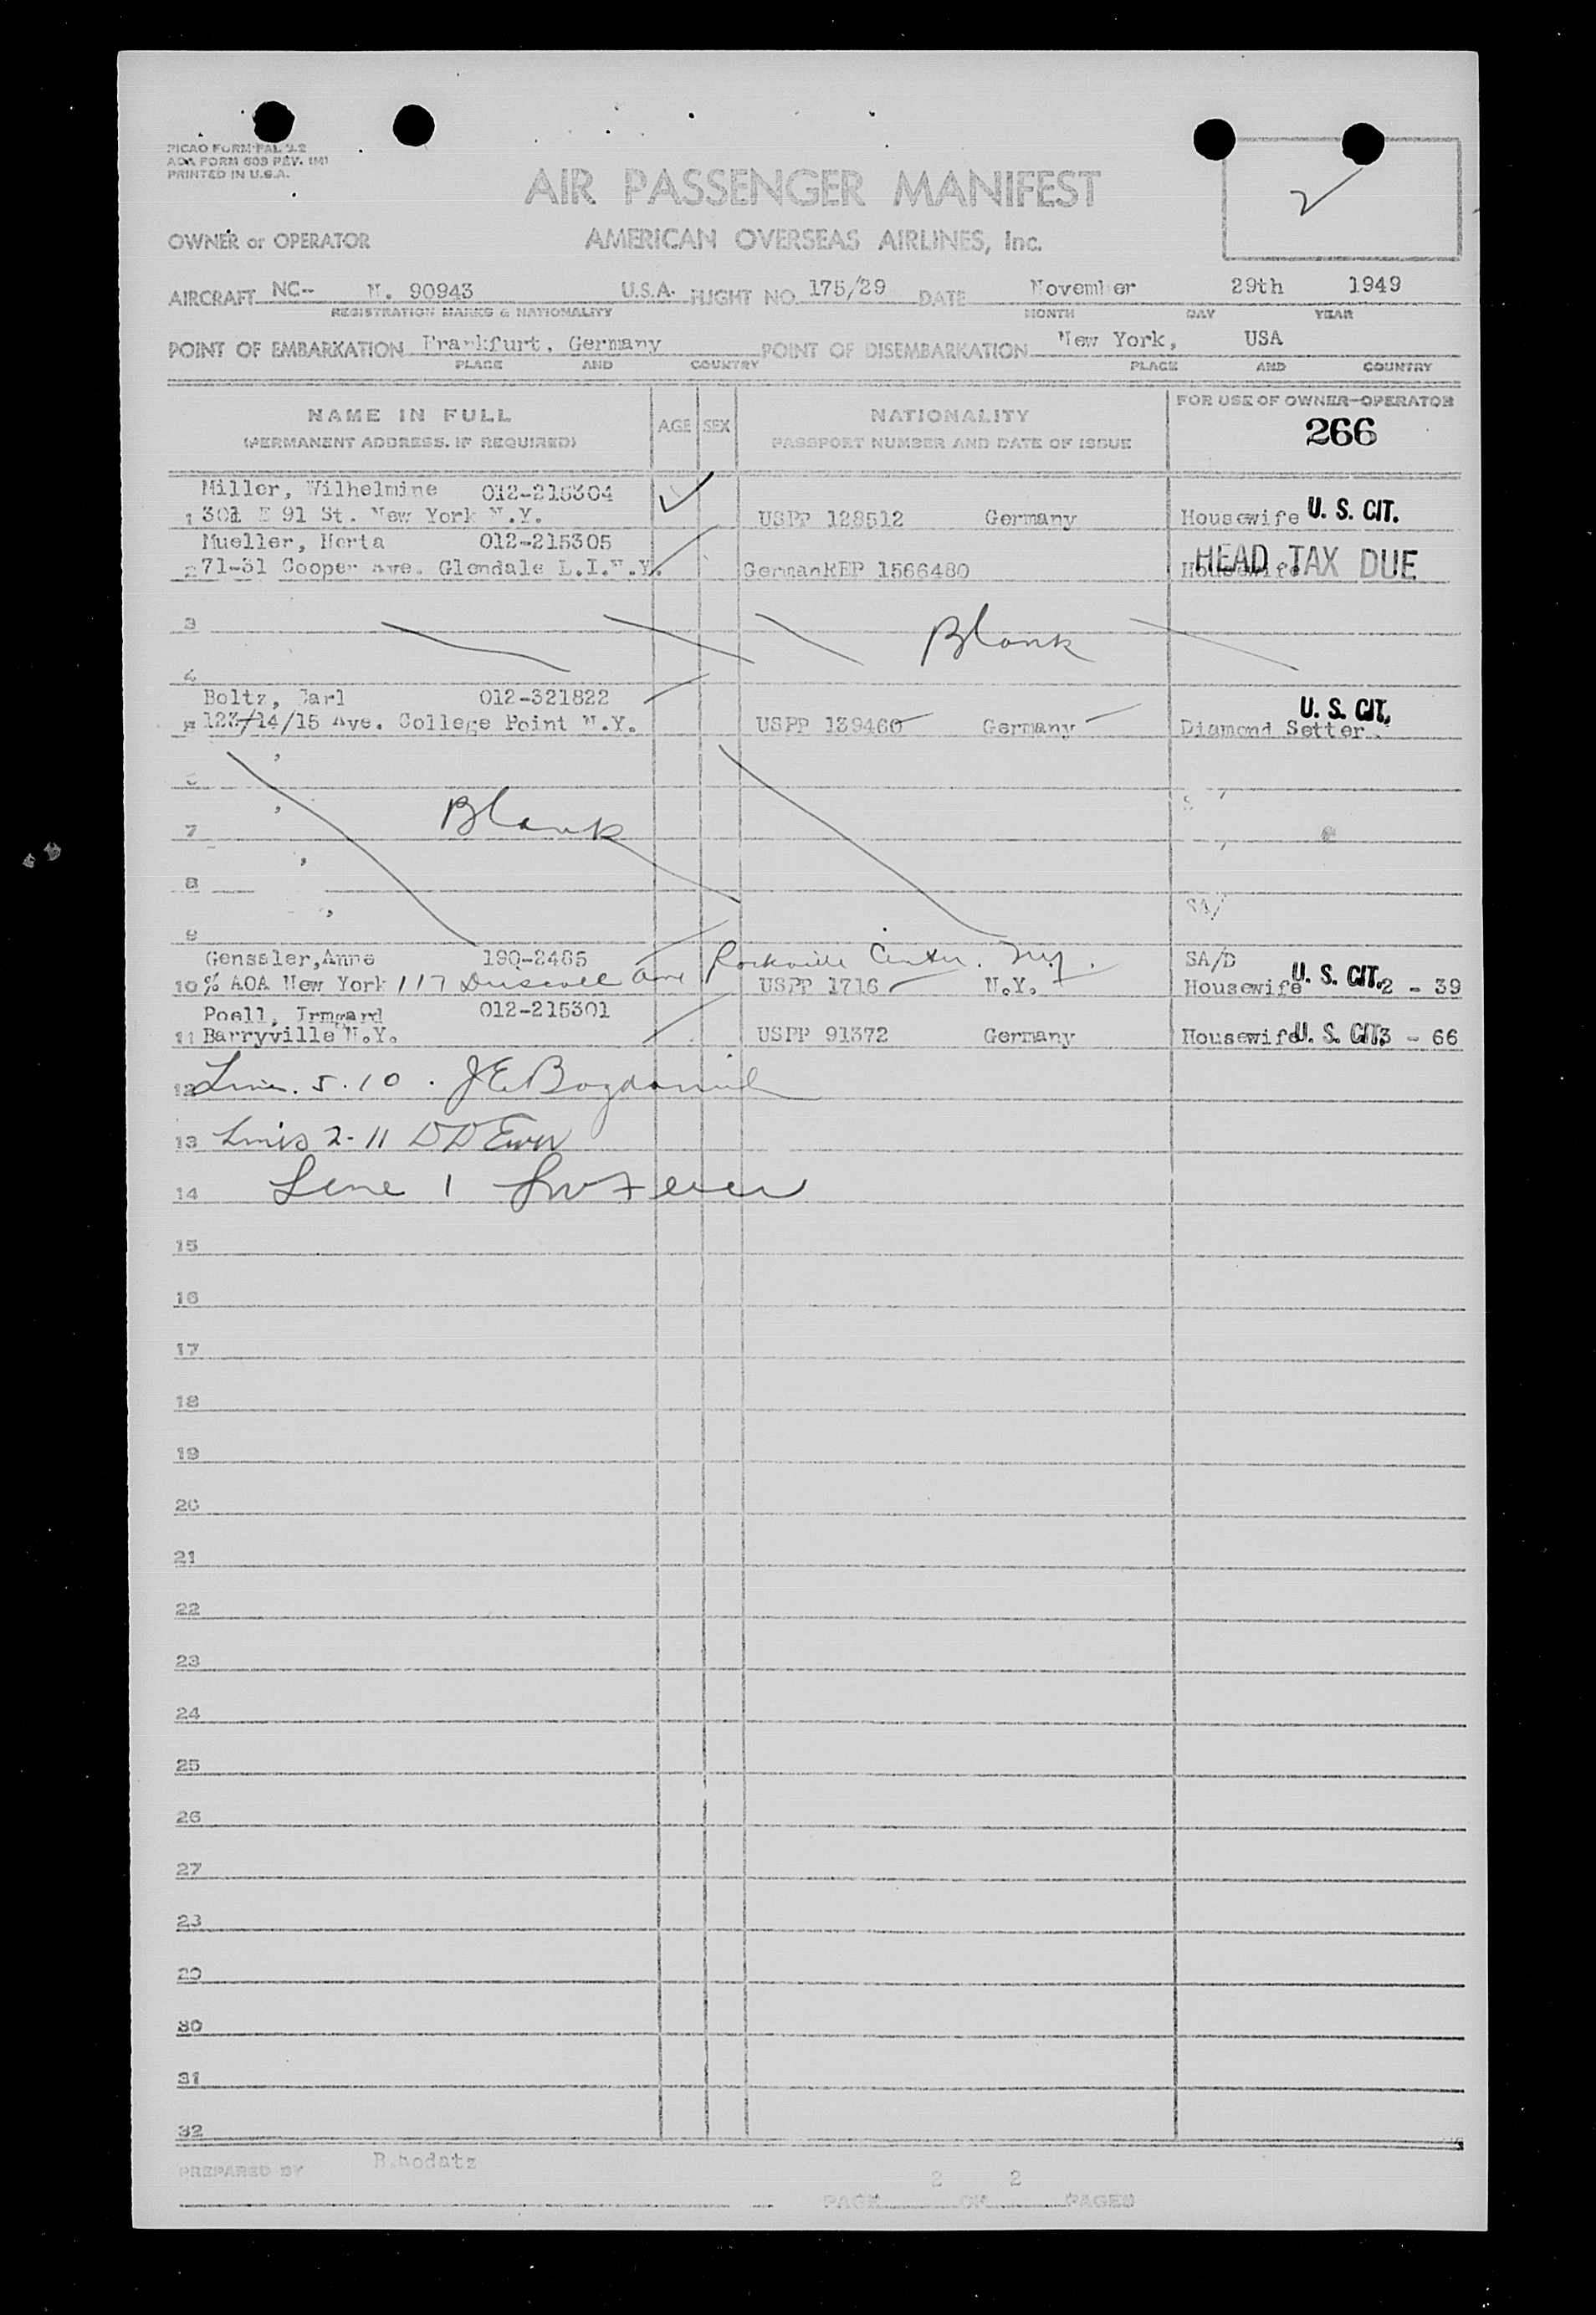 PICAO FORM PAL 2.2
AOA FORM 603 REV. (M)
PRINTED IN U.S.A.
AIR PASSENGER MANIFEST
OWNER or OPERATOR AMERICAN OVERSEAS AIRLINES, Inc.
AIRCRAFT NC-- N. 90943 U.S.A. FLIGHT NO. 175/29 DATE November 29th 1949
REGISTRATION MARKS & NATIONALITY MONTH DAY YEAR
POINT OF EMBARKATION Frankfurt, Germany POINT OF DISEMBARKATION New York, USA
PLACE AND COUNTRY PLACE AND COUNTRY
NAME IN FULL AGE SEX NATIONALITY FOR USE OF OWNER-OPERATOR
(PERMANENT ADDRESS, IF REQUIRED) PASSPORT NUMBER AND DATE OF ISSUE 266
Miller, Wilhelmine 012-215304
1 301 E 91 St. New York N.Y. USPP 128512 Germany Housewife U. S. CIT.
Mueller, Herta 012-215305
2 71-31 Cooper Ave. Glendale L.I.N.Y. GermanREP 1566480 Housewife HEAD TAX DUE
3 Blank
4
Boltz, Carl 012-321822 U. S. CIT.
5 123/14/15 Ave. College Point N.Y. USPP 139460 Germany Diamond Setter
6
7 Blank
8 SA/
9
Genssler,Anne 190-2485 Rockville Center. N.Y. SA/D
10 % AOA New York 117 Driscoll Ave USPP 1716 N.Y. Housewife U. S. CIT. 2 - 39
Poell, Irmgard 012-215301
11 Barryville N.Y. USPP 91372 Germany Housewife U. S. CIT. 3 - 66
12 Line. 5.10.
13 Lines 2-11
14 Line 1
15
16
17
18
19
20
21
22
23
24
25
26
27
28
29
30
31
32
PREPARED BY
PAGE 2 OF 2 PAGES